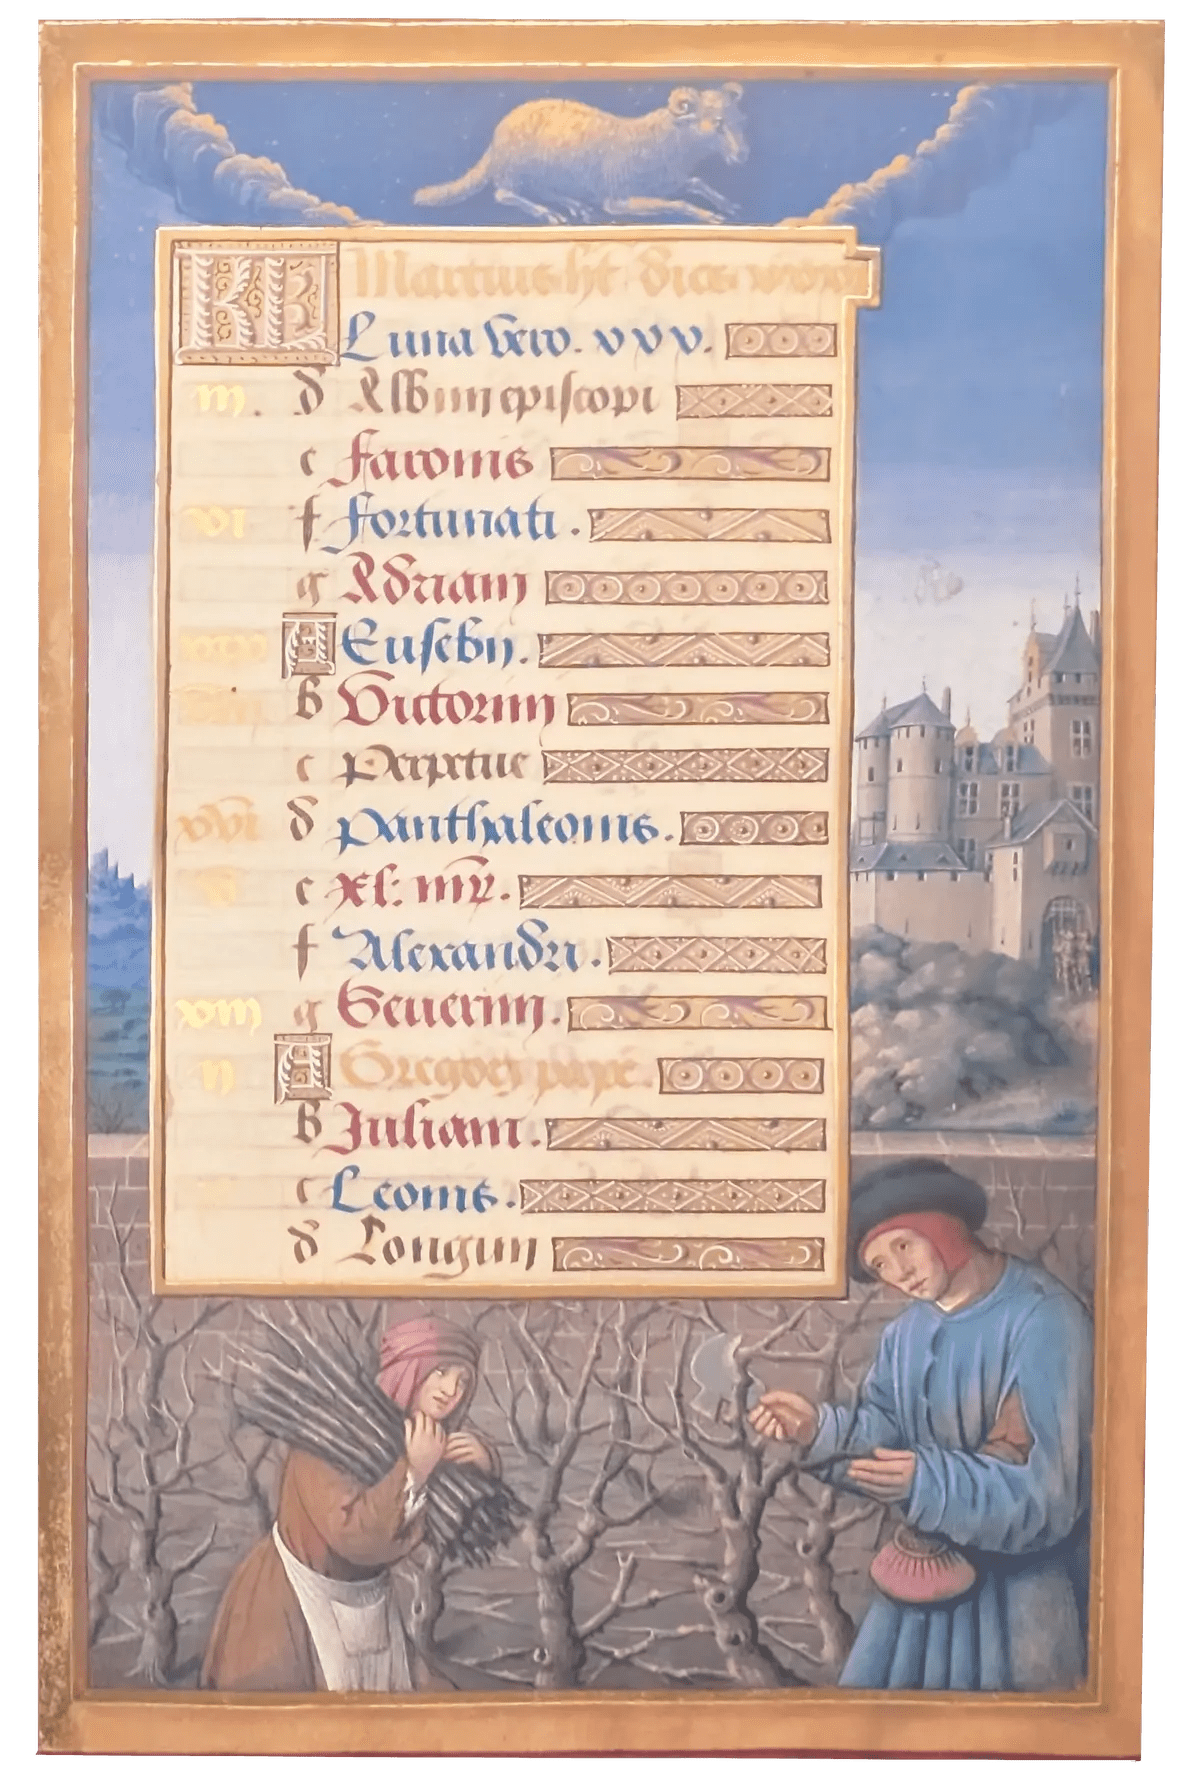 KL Martius ht dies xxxi
Luna vero. xxx.
iii. d Albini episcopi
e faronis
xi f fortunati.
g Adriani
A Eusebii.
b Victorini
c Perpetue
xvi d panthaleonis.
v e xl: mr̃.
f Alexandri.
xiii g Severini.
ii A Gregorii pape.
b Juliani.
c Leonis.
d Longini